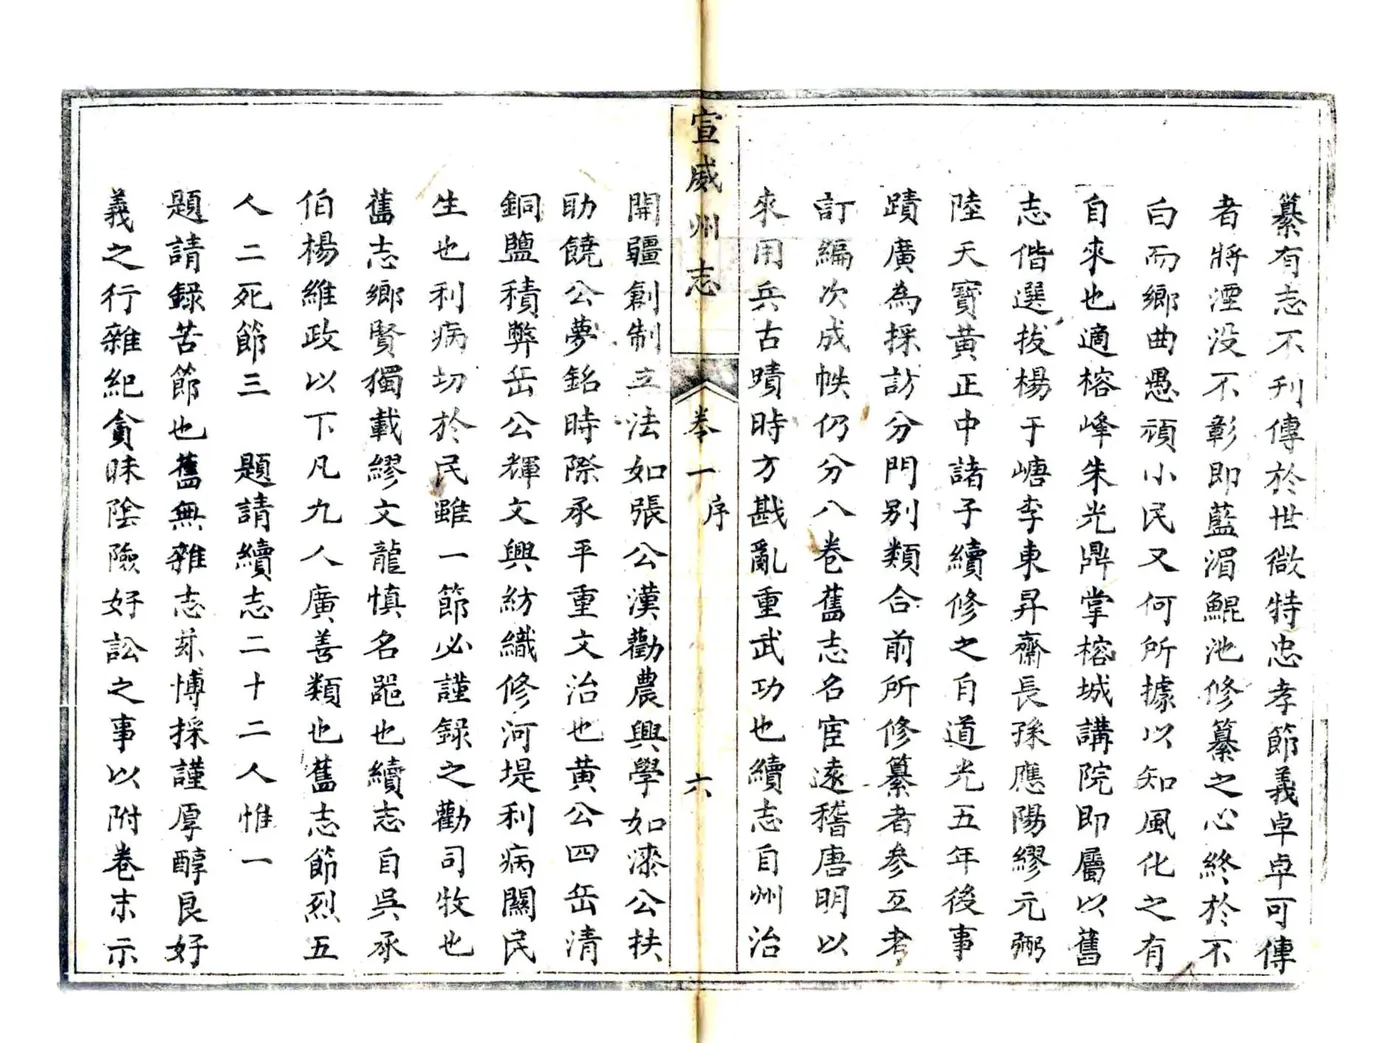 纂有志不刋傳於世微特忠孝節義卓卓可傳
者將湮没不彰即藍湄鯤池修纂之心終於不
白而鄉曲愚頑小民又何所據以知風化之有
自來也適榕峰朱光鼎掌榕城講院即屬以舊
志偕選拔楊于嵣李東昇齋長孫應陽繆元弼
陸天寶黄正中諸子續修之自道光五年後事
蹟廣為採訪分門别類合前所修纂者參互考
訂編次成帙仍分八卷舊志名宦遠稽唐明以
來用兵古蹟時方戡亂重武功也續志自州治
宣威州志
卷一
序
六
開疆創制立法如張公漢勸農興學如漆公扶
助饒公夢銘時際承平重文治也黄公四岳清
銅鹽積弊岳公輝文興紡織修河堤利病關民
生也利病切於民雖一節必謹録之勸司牧也
舊志鄉賢獨載繆文龍慎名噐也續志自吳承
伯楊維政以下凡九人廣善類也舊志節烈五
人二死節三 題請續志二十二人惟一
題請録苦節也舊無雜志玆博採謹厚醇良好
義之行雜紀貪昧陰險好訟之事以附卷末示